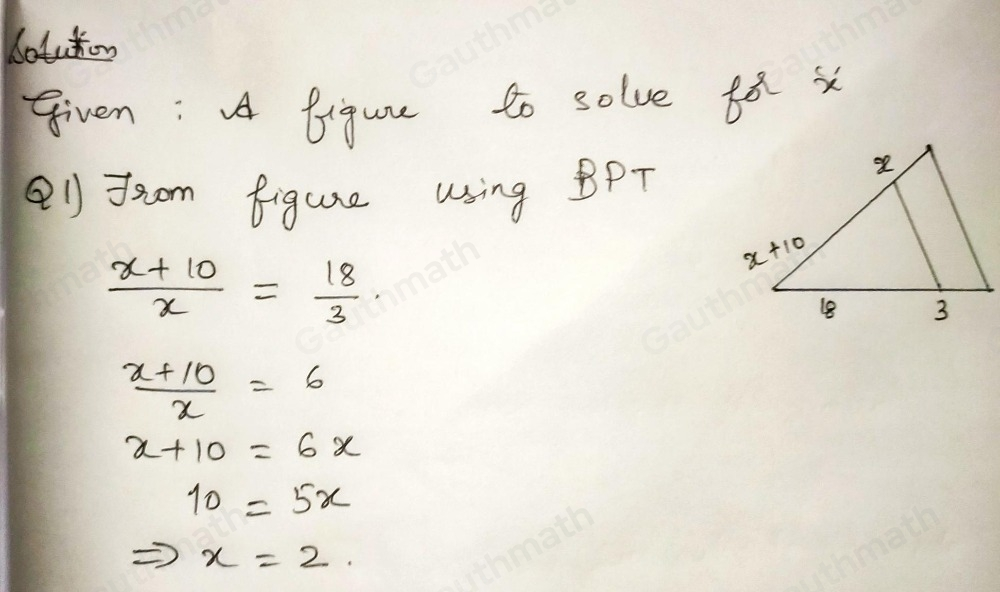 Solution
Given : A figure to solve for 'x'
Q1) From figure using BPT
x+10/x = 18/3.
x+10/x = 6
x+10 = 6x
10 = 5x
=> x = 2.
x
x+10
18
3
Gauthmath